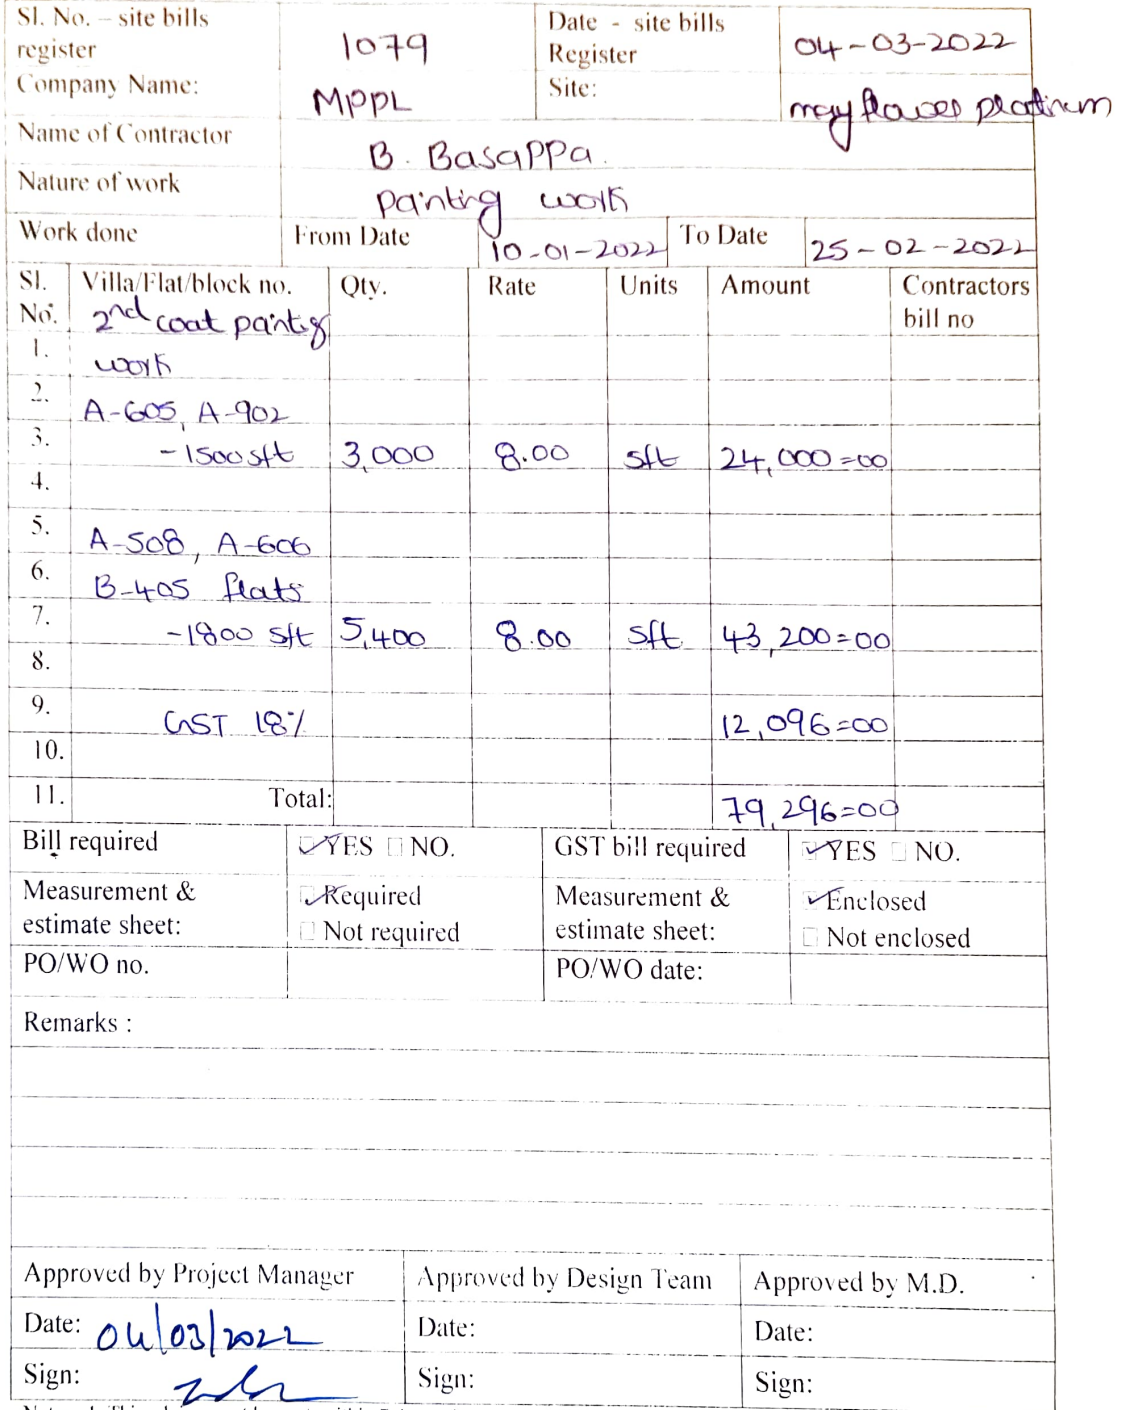 Sl. No. – site bills register 1079 Date - site bills Register 04-03-2022
Company Name: MPPL Site: mayflower platinum
Name of Contractor B. Basappa.
Nature of work painting work
Work done From Date 10-01-2022 To Date 25-02-2022
Sl. No. Villa/Flat/block no. Qty. Rate Units Amount Contractors bill no
2nd coat painting
1. work
2. A-605, A-902
3. -1500 sft 3,000 8.00 sft 24,000=00
4.
5. A-508, A-606
6. B-405 flats
7. -1800 sft 5,400 8.00 sft 43,200=00
8.
9. GST 18% 12,096=00
10.
11. Total: 79,296=00
Bill required YES NO. GST bill required YES NO.
Measurement & estimate sheet: Required Not required Measurement & estimate sheet: Enclosed Not enclosed
PO/WO no. PO/WO date:
Remarks :
Approved by Project Manager Approved by Design Team Approved by M.D.
Date: 04/03/2022 Date: Date:
Sign: Sign: Sign: